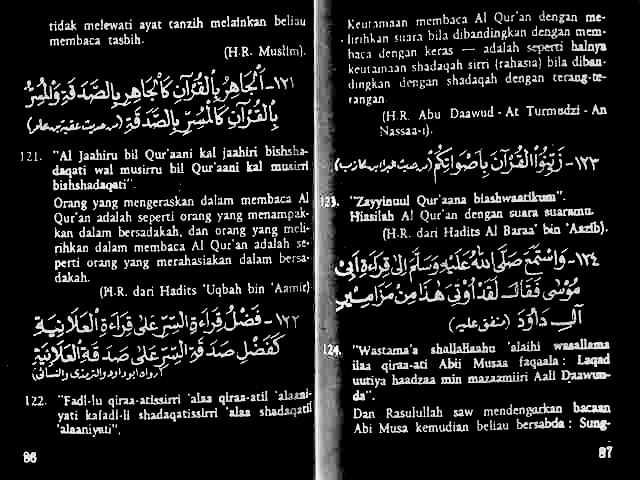 tidak melewati ayat tanzih melainkan beliau
membaca tasbih.
(H.R. Muslim).
١٢١- اَلْجَاهِرُ بِالْقُرْآنِ كَالْجَاهِرِ بِالصَّدَقَةِ وَالْمُسِرُّ
بِالْقُرْآنِ كَالْمُسِرِّ بِالصَّدَقَةِ
121. "Al Jaahiru bil Qur'aani kal jaahiri bishsha-
daqati wal musirru bil Qur'aani kal musirri
bishshadaqati".
Orang yang mengeraskan dalam membaca Al
Qur'an adalah seperti orang yang menampak-
kan dalam bersadakah, dan orang yang meli-
rihkan dalam membaca Al Qur'an adalah se-
perti orang yang merahasiakan dalam bersa-
dakah.
(H.R. dari Hadits 'Uqbah bin 'Aamir)
١٢٢- فَضْلُ قِرَاءَةِ السِّرِّ عَلَى قِرَاءَةِ الْعَلَانِيَةِ
كَفَضْلِ صَدَقَةِ السِّرِّ عَلَى صَدَقَةِ الْعَلَانِيَةِ
(رواه ابو داود والترمذى والنسائى)
122. "Fadl-lu qiraa-atissirri 'alaa qiraa-atil 'alaani-
yati kafadl-li shadaqatissirri 'alaa shadaqatil
'alaaniyati".
86
Keutamaan membaca Al Qur'an dengan me-
lirihkan suara bila dibandingkan dengan mem-
baca dengan keras — adalah seperti halnya
keutamaan shadaqah sirri (rahasia) bila diban-
dingkan dengan shadaqah dengan terang-te-
rangan.
(H.R. Abu Daawud - At Turmudzi - An
Nassaa-i).
١٢٣- زَيِّنُوا الْقُرْآنَ بِأَصْوَاتِكُمْ
123. "Zayyinuul Qur'aana biashwaatikum".
Hiasilah Al Qur'an dengan suara suaramu.
(H.R. dari Hadits Al Baraa' bin 'Aazib).
١٢٤- وَاسْتَمَعَ صَلَّى اللهُ عَلَيْهِ وَسَلَّمَ إِلَى قِرَاءَةِ أَبِى
مُوْسَى فَقَالَ لَقَدْ أُوْتِىَ هٰذَا مِنْ مَزَامِيْرِ
آلِ دَاوُدَ (متفق عليه)
124. "Wastama'a shallallaahu 'alaihi wasallama
ilaa qiraa-ati Abii Musaa faqaala : Laqad
uutiya haadzaa min mazaamiiri Aali Daawu-
da".
Dan Rasulullah saw mendengarkan bacaan
Abi Musa kemudian beliau bersabda : Sung-
87